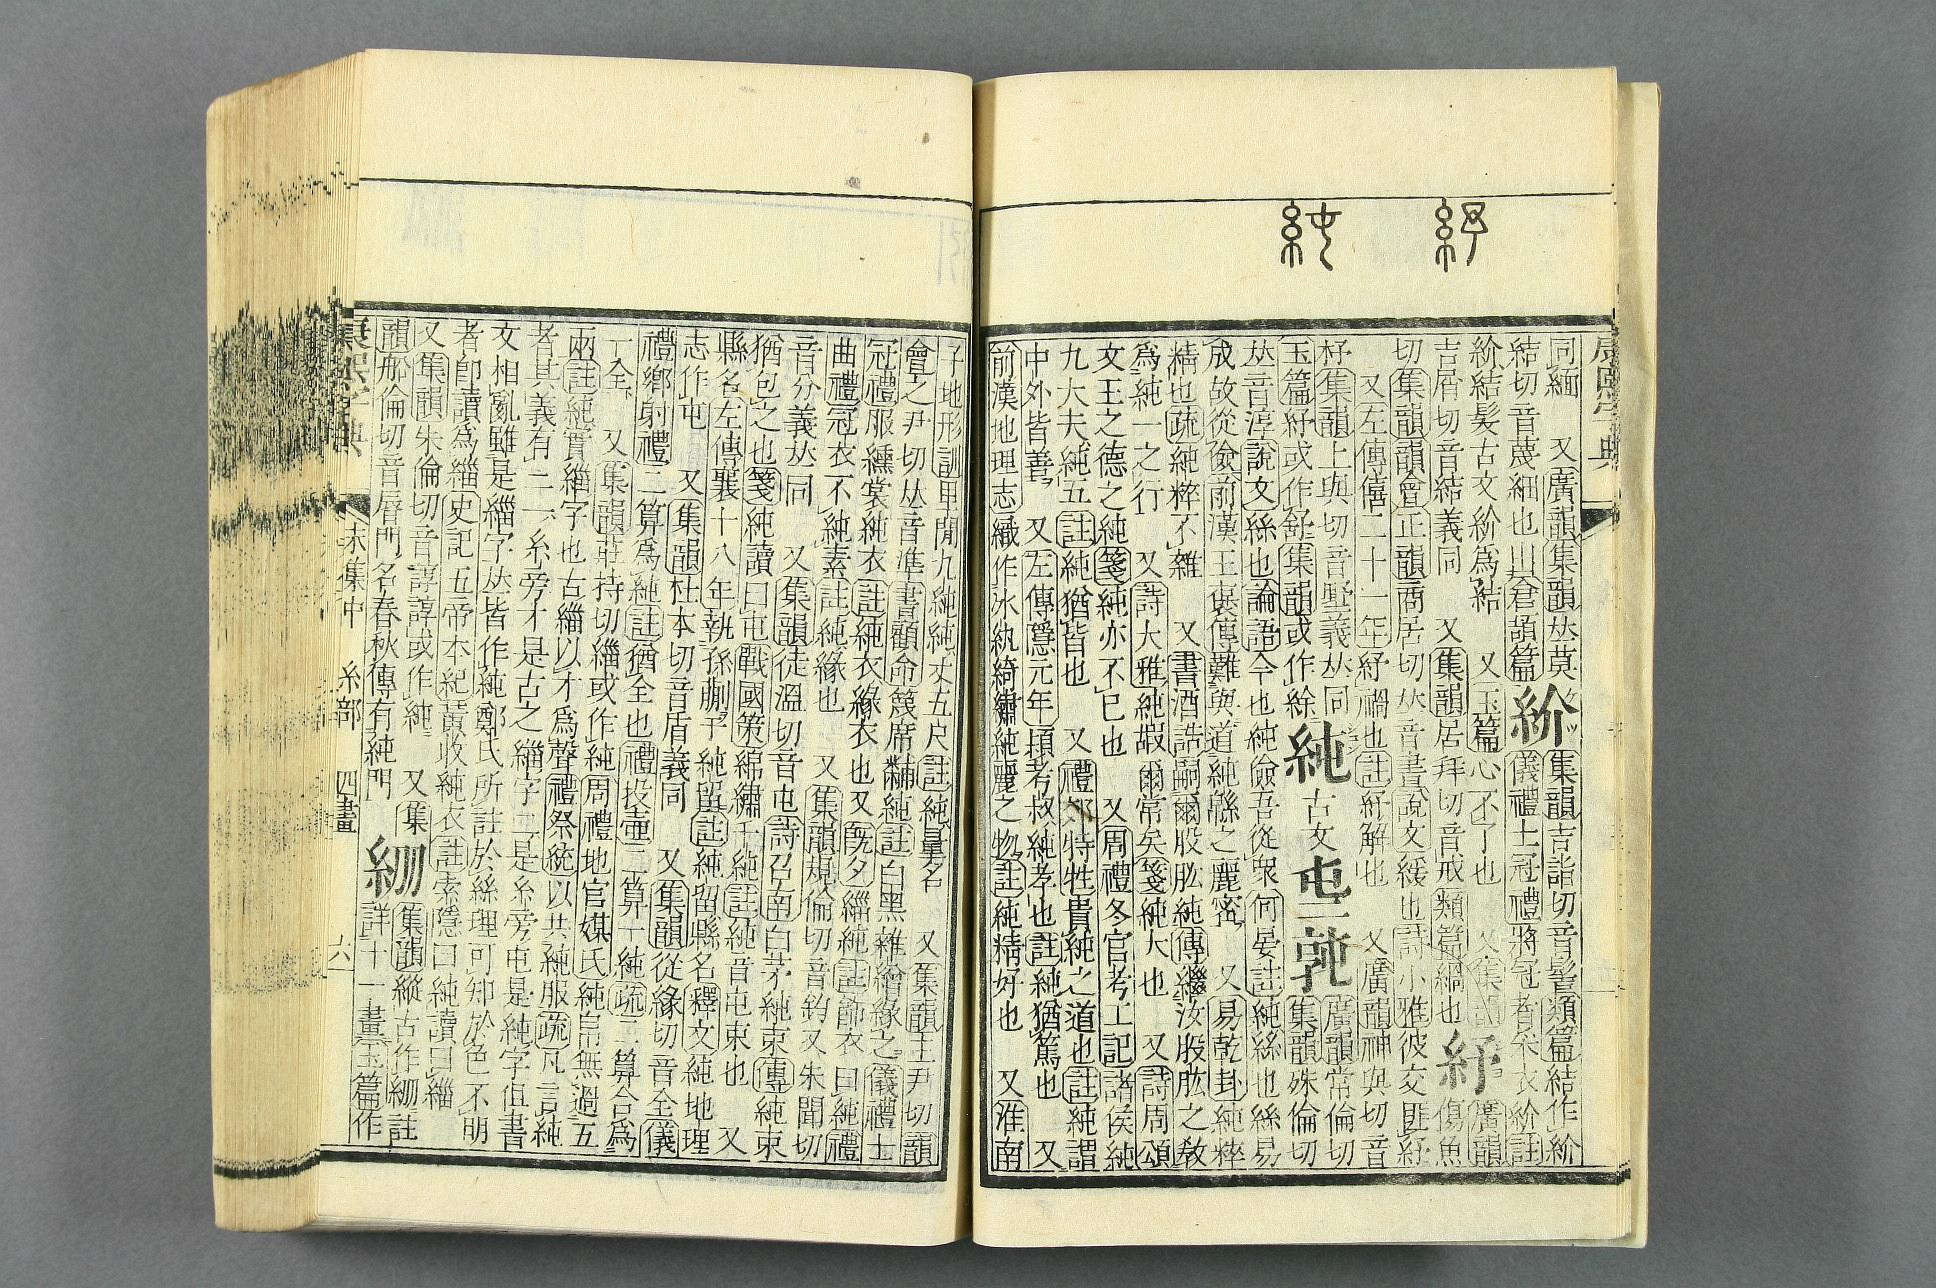 紓
純
同緬 又廣韻集韻𠀤莫
結切音蔑細也倉頡篇 紒 集韻吉詣切音髻類篇結作紒 儀禮士冠禮將冠者采衣紒註
紒結髮古文紒爲結 又玉篇心不了也 又集韻 廣韻
吉屑切音結義同 又集韻居拜切音戒類篇綱也 紓 傷魚
切集韻韻會正韻商居切𠀤音書說文緩也詩小雅彼交匪紓
又左傳僖二十一年紓禍也註紓解也 又廣韻神與切音
杼集韻上與切音墅義𠀤同 純 古文 廣韻常倫切
玉篇紓或作舒集韻或作綔 集韻殊倫切
𠀤音淳說文絲也論語今也純儉吾從衆何晏註純絲也絲易
成故從儉前漢王襃傳難與道純緜之麗密 又易乾卦純粹
精也疏純粹不雜 又書酒誥嗣爾股肱純傳繼汝股肱之敎
爲純一之行 又詩大雅純嘏爾常矣箋純大也 又詩周頌
文王之德之純箋純亦不已也 又周禮冬官考工記諸侯純
九大夫純五註純猶皆也 又禮郊特牲貴純之道也註純謂
中外皆善 又左傳隱元年潁考叔純孝也註純猶篤也 又
前漢地理志織作冰紈綺繡純麗之物註純精好也 又淮南
子地形訓里閒九純純丈五尺註純量名 又集韻主尹切韻
會之尹切𠀤音準書顧命篾席黼純註白黑雜繒緣之儀禮士
冠禮服纁裳純衣註純衣緣衣也又旣夕緇純註飾衣曰純禮
曲禮冠衣不純素註純緣也 又集韻規倫切音鈞又朱聞切
音分義𠀤同 又集韻徒溫切音屯詩召南白茅純束傳純束
猶包之也箋純讀曰屯戰國策綿繡千純註純音屯束也 又
縣名左傳襄十八年執孫蒯于純留註純留縣名釋文純地理
志作屯 又集韻杜本切音盾義同 又集韻從緣切音全儀
禮鄉射禮二算爲純註猶全也禮投壺二算一純疏二算合爲
一全 又集韻莊持切緇或作純周禮地官媒氏純帛無過五
兩註純實緇字也古緇以才爲聲禮祭統以共純服疏凡言純
者其義有二一糸旁才是古之緇字二是糸旁屯是純字但書
文相亂雖是緇字𠀤皆作純鄭氏所註於絲理可知於色不明
者卽讀爲緇史記五帝本紀黃收純衣註索隱曰純讀曰緇
又集韻朱倫切音諄諄或作純 又集
韻船倫切音脣門名春秋傳有純門 𥿭 集韻縱古作𥿭註 詳十一畫玉篇作
康熙字典 未集中 糸部 四畫 六